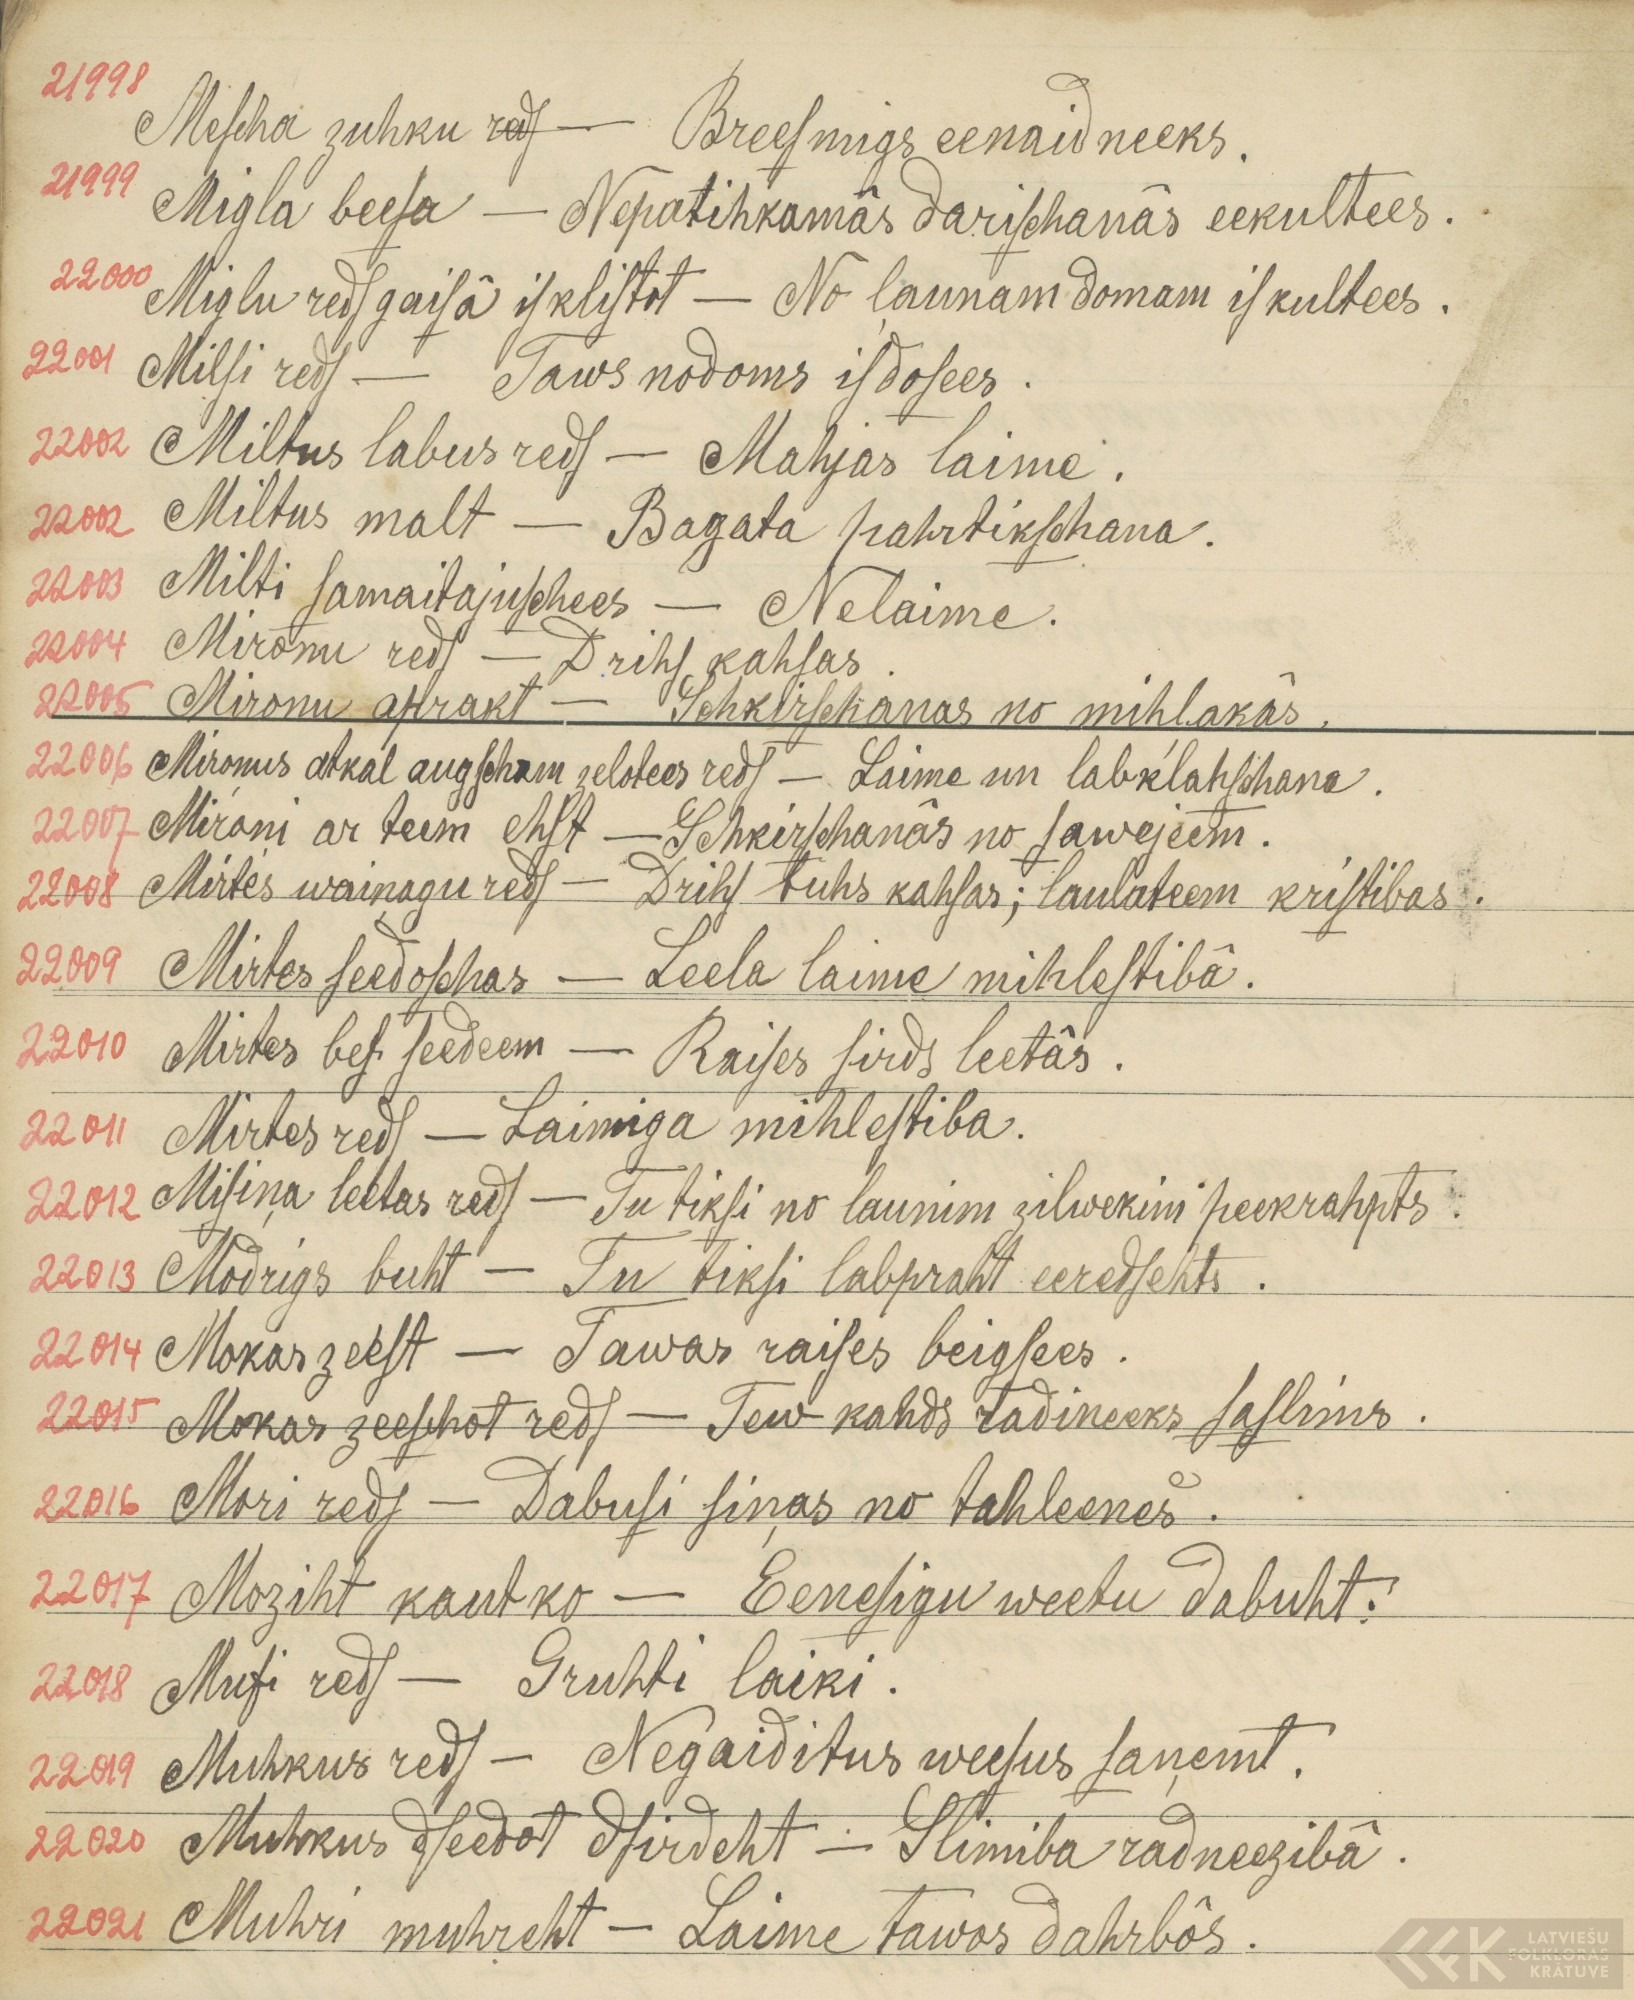 21998
Mescha zuhku reds — Breesmigs eenaidneeks.
21999
Migla beesa — Nepatihkamâs darischanâs eekultees.
22000
Miglu reds gaisâ isklistot — No ļaunam domam iskultees.
22001
Milsi reds — Taws nodoms isdosees.
22002 Miltus labus reds — Mahjas laime.
22002 Miltus malt — Bagata pahrtikschana.
22003 Milti samaitajuschees — Nelaime.
22004 Mironu reds — Drihs kahsas.
22005 Mironu aprakt — Schkirschanas no mihlakâs.
22006 Mironus atkal augscham zelotees reds — Laime un labklahschana.
22007 Mironi ar teem ehst — Schkirschanâs no sawejeem.
22008 Mirtes wainagu reds — Drihs tuhs kahsas; laulateem kristibas.
22009 Mirtes seedoschas — Leela laime mihlestibâ.
22010 Mirtes bes seedeem — Raises sirds leetâs.
22011 Mirtes reds — Laimiga mihlestiba.
22012 Misiņa leetas reds — Tu tiksi no launim zilwekim peekrahpts.
22013 Modrigs buht — Tu tiksi labpraht eeredsehts.
22014 Mokas zeest — Tawas raises beigsees.
22015 Mokas zeeschot reds — Tew kahds radineeks saslims.
22016 Mori reds — Dabusi siņas no tahleenes.
22017 Moziht kaut ko — Eenesigu weetu dabuht.
22018 Musi reds — Gruhti laiki.
22019 Muhkus reds — Negaiditus weesus saņemt.
22020 Muhkus dseedot dsirdeht — Slimiba radneezibâ.
22021 Muhri muhreht — Laime tawos dahrbôs.
LATVIEŠU
FOLKLORAS
KRĀTUVE